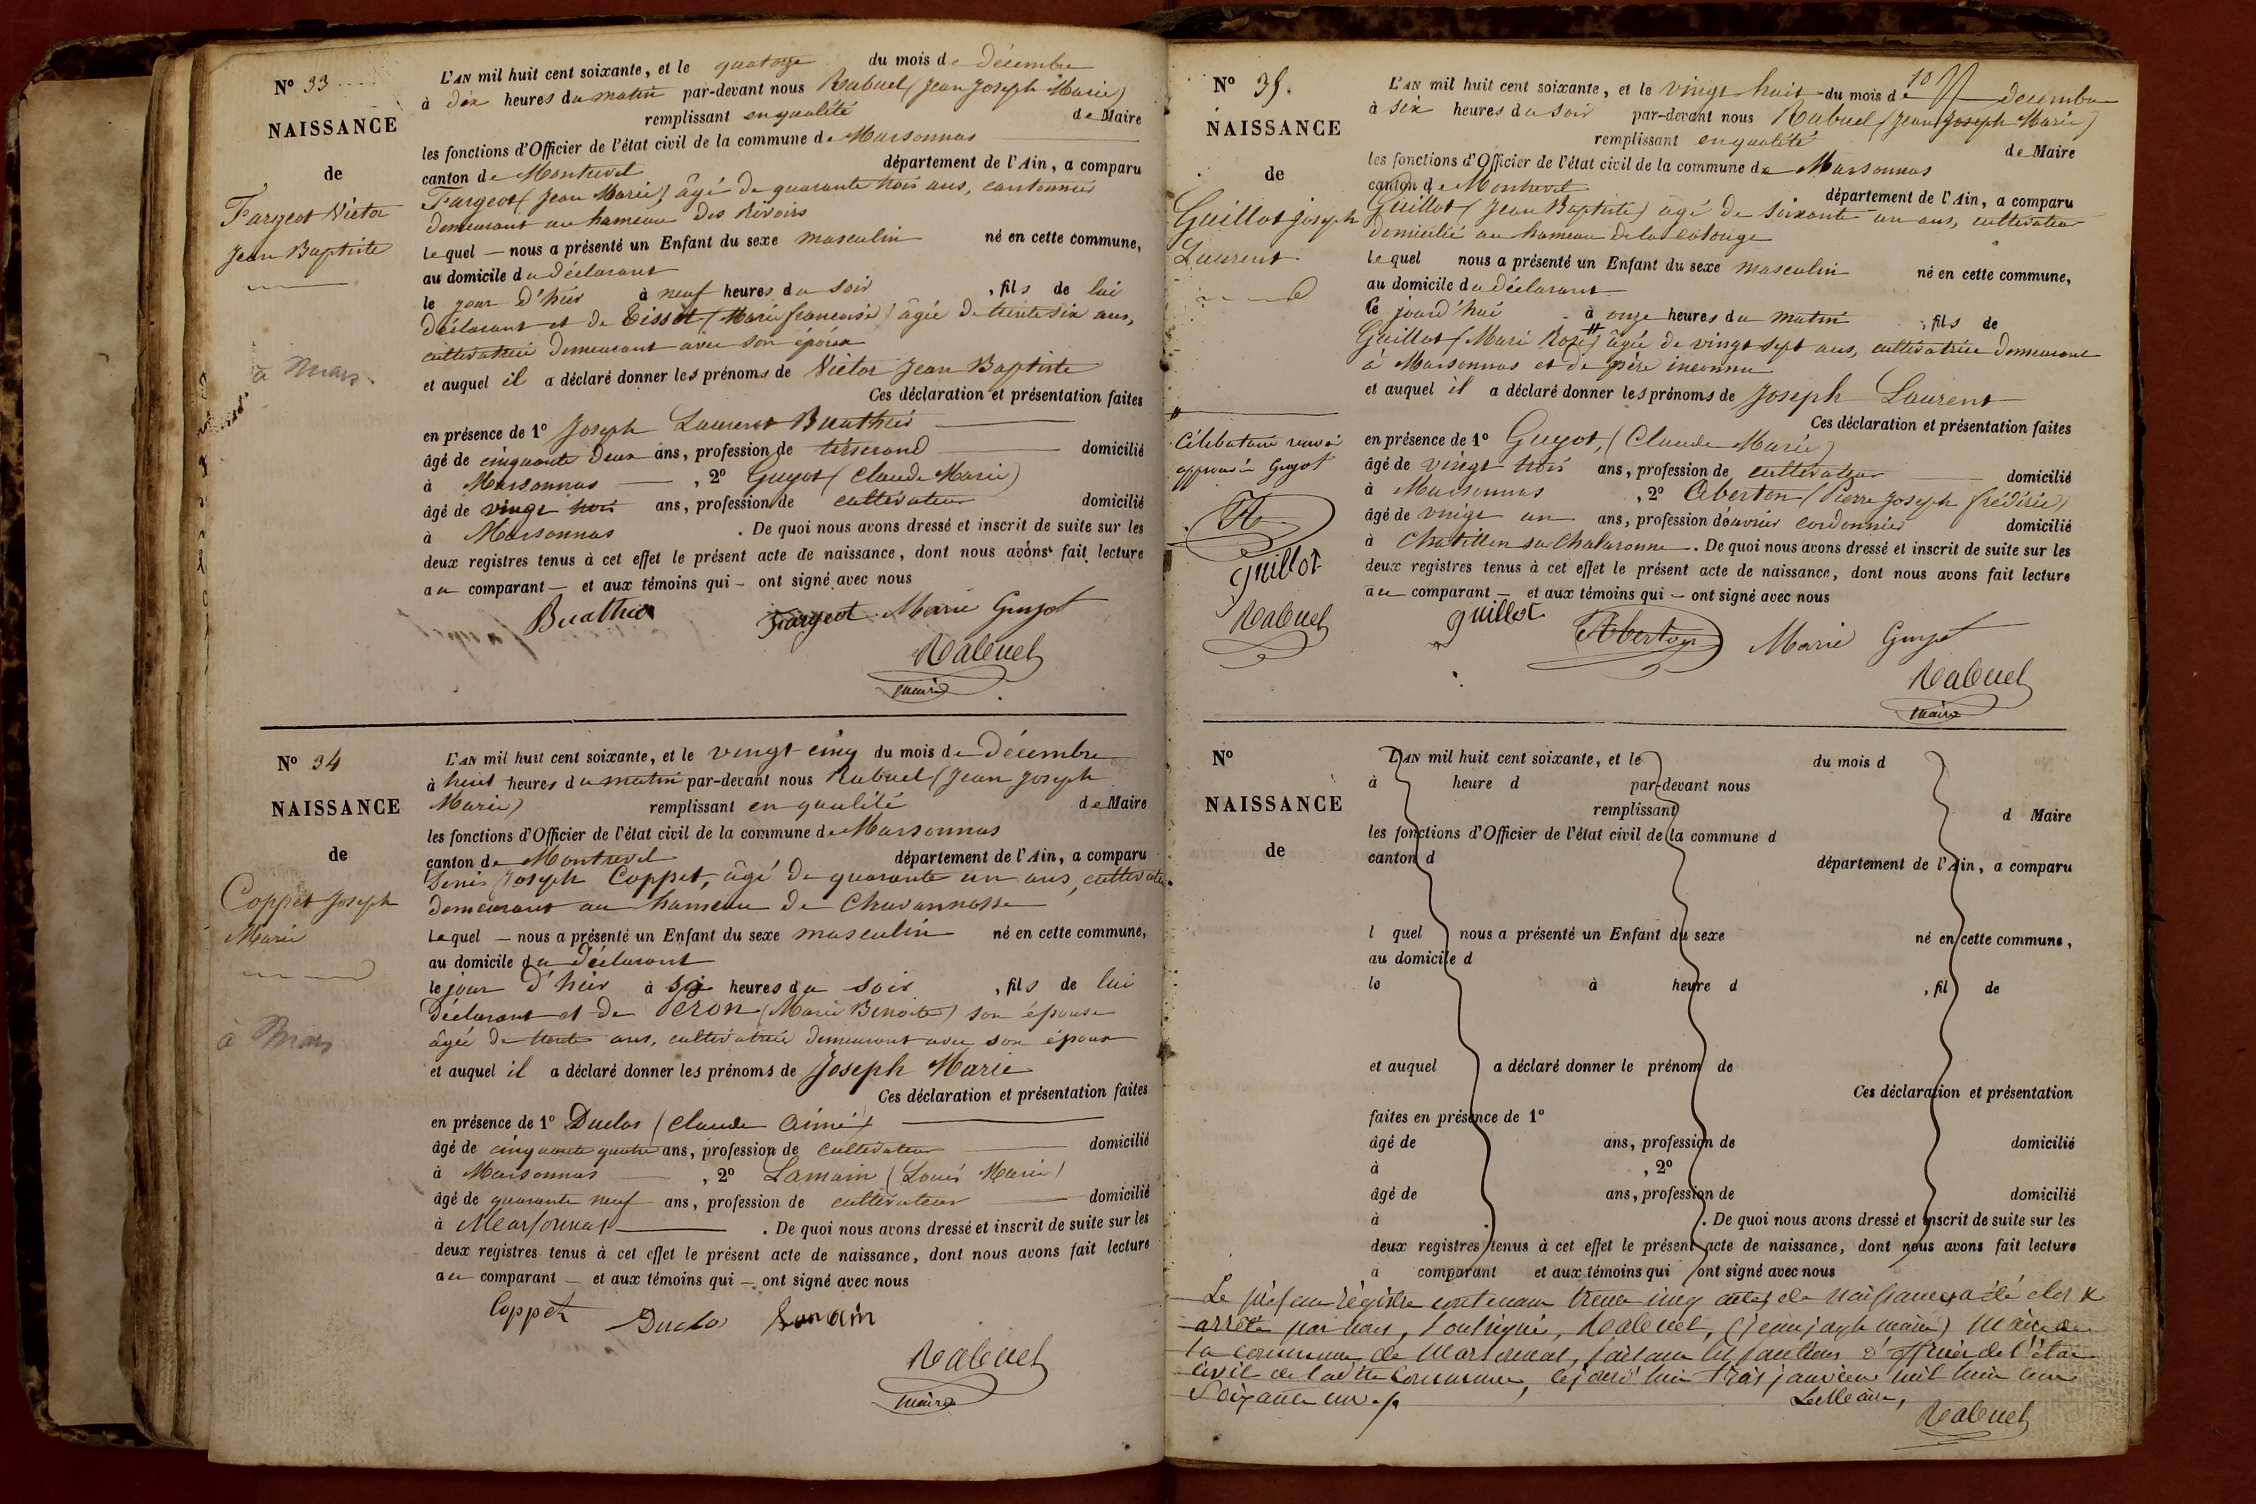 N° 33
NAISSANCE
de
Fargeot Victor
Jean Baptiste
à Mars
L'AN mil huit cent soixante, et le quatorze du mois de décembre
à dix heures du matin par-devant nous Rabuel (Jean Joseph Marie)
remplissant en qualité de Maire
les fonctions d'Officier de l'état civil de la commune de Marsonnas
canton de Montrevel département de l'Ain, a comparu
Fargeot (Jean Marie) âgé de quarante trois ans, cantonnier
demeurant au hameau des Rivoirs
lequel — nous a présenté un Enfant du sexe masculin né en cette commune,
au domicile du déclarant
le jour d'hier à neuf heures du soir, fils de lui
déclarant et de Tissot (Marie françoise) âgée de trente six ans,
cultivatrice demeurant avec son époux
et auquel il a déclaré donner les prénoms de Victor Jean Baptiste
Ces déclaration et présentation faites
en présence de 1° Joseph Laurent Buathier
âgé de cinquante deux ans, profession de tisserand domicilié
à Marsonnas, 2° Guyot (Claude Marie)
âgé de vingt trois ans, profession de cultivateur domicilié
à Marsonnas. De quoi nous avons dressé et inscrit de suite sur les
deux registres tenus à cet effet le présent acte de naissance, dont nous avons fait lecture
au comparant — et aux témoins qui — ont signé avec nous
Buathier Fargeot Marie Guyot
Rabuel
maire
N° 34
NAISSANCE
de
Coppet Joseph
Marie
à Mars
L'AN mil huit cent soixante, et le vingt cinq du mois de décembre
à huit heures du matin par-devant nous Rabuel (Jean Joseph
Marie) remplissant en qualité de Maire
les fonctions d'Officier de l'état civil de la commune de Marsonnas
canton de Montrevel département de l'Ain, a comparu
Denis Joseph Coppet, âgé de quarante un ans, cultivateur
demeurant au hameau de Chavannosse
lequel — nous a présenté un Enfant du sexe masculin né en cette commune,
au domicile du déclarant
le jour d'hier à six heures du soir, fils de lui
déclarant et de Péron (Marie Benoite) son épouse
âgée de trente ans, cultivatrice demeurant avec son époux
et auquel il a déclaré donner les prénoms de Joseph Marie
Ces déclaration et présentation faites
en présence de 1° Duclos (Claude Aimé)
âgé de cinquante quatre ans, profession de cultivateur domicilié
à Marsonnas, 2° Lamain (Louis Marie)
âgé de quarante neuf ans, profession de cultivateur domicilié
à Marsonnas. De quoi nous avons dressé et inscrit de suite sur les
deux registres tenus à cet effet le présent acte de naissance, dont nous avons fait lecture
au comparant — et aux témoins qui — ont signé avec nous
Coppet Duclos Lamain
Rabuel
maire
N° 35.
NAISSANCE
de
Guillot Joseph
Laurent
célibataire renvoi
approuvé Guyot
Guillot
Rabuel
L'AN mil huit cent soixante, et le vingt huit du mois de décembre
à six heures du soir par-devant nous Rabuel (Jean Joseph Marie)
remplissant en qualité de Maire
les fonctions d'Officier de l'état civil de la commune de Marsonnas
canton de Montrevel département de l'Ain, a comparu
Guillot (Jean Baptiste) âgé de soixante un ans, cultivateur
domicilié au hameau de la
lequel nous a présenté un Enfant du sexe masculin né en cette commune,
au domicile du déclarant
le jourd'hui à onze heures du matin, fils de
Guillot (Marie Rose) âgée de vingt sept ans, cultivatrice demeurant
à Marsonnas et de père inconnu
et auquel il a déclaré donner les prénoms de Joseph Laurent
Ces déclaration et présentation faites
en présence de 1° Guyot, (Claude Marie)
âgé de vingt trois ans, profession de cultivateur domicilié
à Marsonnas, 2° Aberton (Pierre Joseph frédéric)
âgé de vingt un ans, profession d'ouvrier cordonnier domicilié
à Chatillon sur Chalaronne. De quoi nous avons dressé et inscrit de suite sur les
deux registres tenus à cet effet le présent acte de naissance, dont nous avons fait lecture
au comparant — et aux témoins qui — ont signé avec nous
guillot Aberton Marie Guyot
Rabuel
maire
N°
NAISSANCE
de
L'AN mil huit cent soixante, et le du mois d
à heure d par-devant nous
remplissant d Maire
les fonctions d'Officier de l'état civil de la commune d
canton d département de l'Ain, a comparu
l quel nous a présenté un Enfant du sexe né en cette commune,
au domicile d
le à heure d , fil de
et auquel a déclaré donner le prénom de
Ces déclaration et présentation
faites en présence de 1°
âgé de ans, profession de domicilié
à , 2°
âgé de ans, profession de domicilié
à . De quoi nous avons dressé et inscrit de suite sur les
deux registres tenus à cet effet le présent acte de naissance, dont nous avons fait lecture
a comparant et aux témoins qui ont signé avec nous
Le présent régistre contenant trente cinq actes de naissances a été clos &
arrêté par nous, soussigné, Rabuel, (jean joseph marie) Maire de
la commune de Marsonnas, faisant les fonctions d'officier de l'état
civil de ladite Commune, cejourd'hui trois janvier mil huit cent
soixante un.
Le Maire,
Rabuel